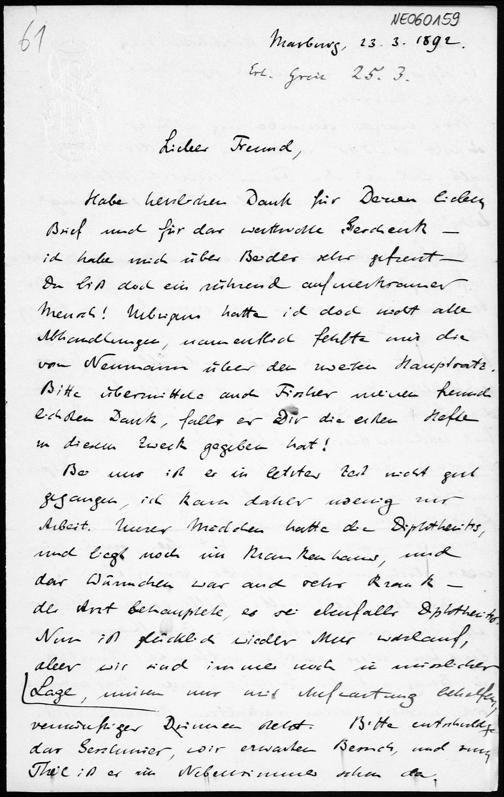 NE060159
61
Marburg, 23. 3. 1892.
Erh. Greiz 25. 3.
Lieber Freund,
Habe herzlichen Dank für Deinen lieben
Brief und für das wertvolle Geschenk —
ich habe mich über Beides sehr gefreut —
Du bist doch ein rührend aufmerksamer
Mensch! Uebrigens hatte ich doch nicht alle
Abhandlungen, namentlich fehlte mir die
von Neumann über den zweiten Hauptsatz.
Bitte übermittele auch Fischer meinen freund
lichsten Dank, falls er Dir die ersten Hefte
zu diesem Zweck gegeben hat!
Bei uns ist es in letzter Zeit nicht gut
gegangen, ich kam daher wenig zur
Arbeit. Unser Mädchen hatte die Diphtheritis,
und liegt noch im Krankenhaus, und
das Würmchen war auch sehr krank —
der Arzt behauptete, es sei ebenfalls Diphtheritis.
Nun ist glücklich wieder Alles wohlauf,
aber wir sind immer noch in misslicher
Lage, müssen uns mit Aufwartung behelfen,
vernünftiger Dirnen
Bitte entschuldige
das Geschmier, wir erwarten Besuch, und zum
Theil ist er im Nebenzimmer schon da.